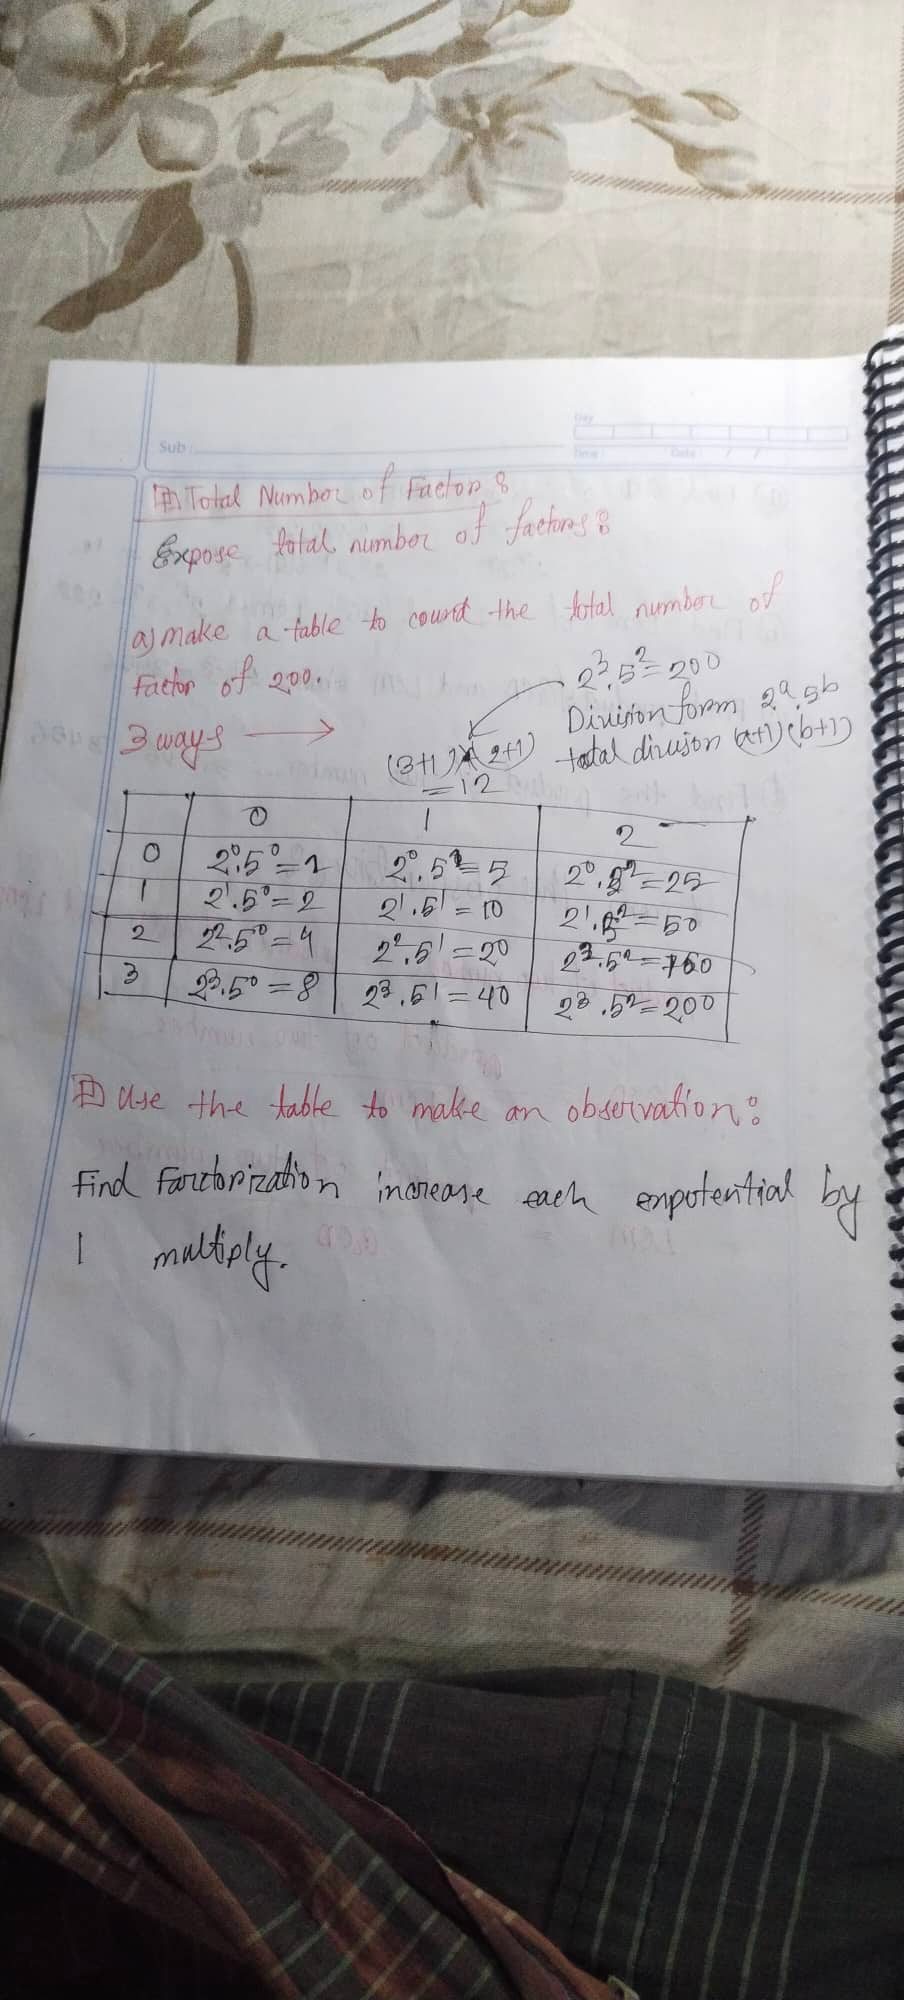 Day
Sub :
Time : Date : / /
Total Number of Factor :
Expose total number of factors :
a) make a table to count the total number of
Factor of 200.
2³.5² = 200
3 ways →
Division form 2ᵃ.5ᵇ
(3+1)×(2+1)
total division (a+1)(b+1)
= 12
0 1 2
0 2⁰.5⁰=1 2⁰.5¹=5 2⁰.5²=25
1 2¹.5⁰=2 2¹.5¹=10 2¹.5²=50
2 2².5⁰=4 2².5¹=20
3 2³.5⁰=8 2³.5¹=40 2³.5²=200
Use the table to make an observation :
Find Factorization increase each by
1 multiply.